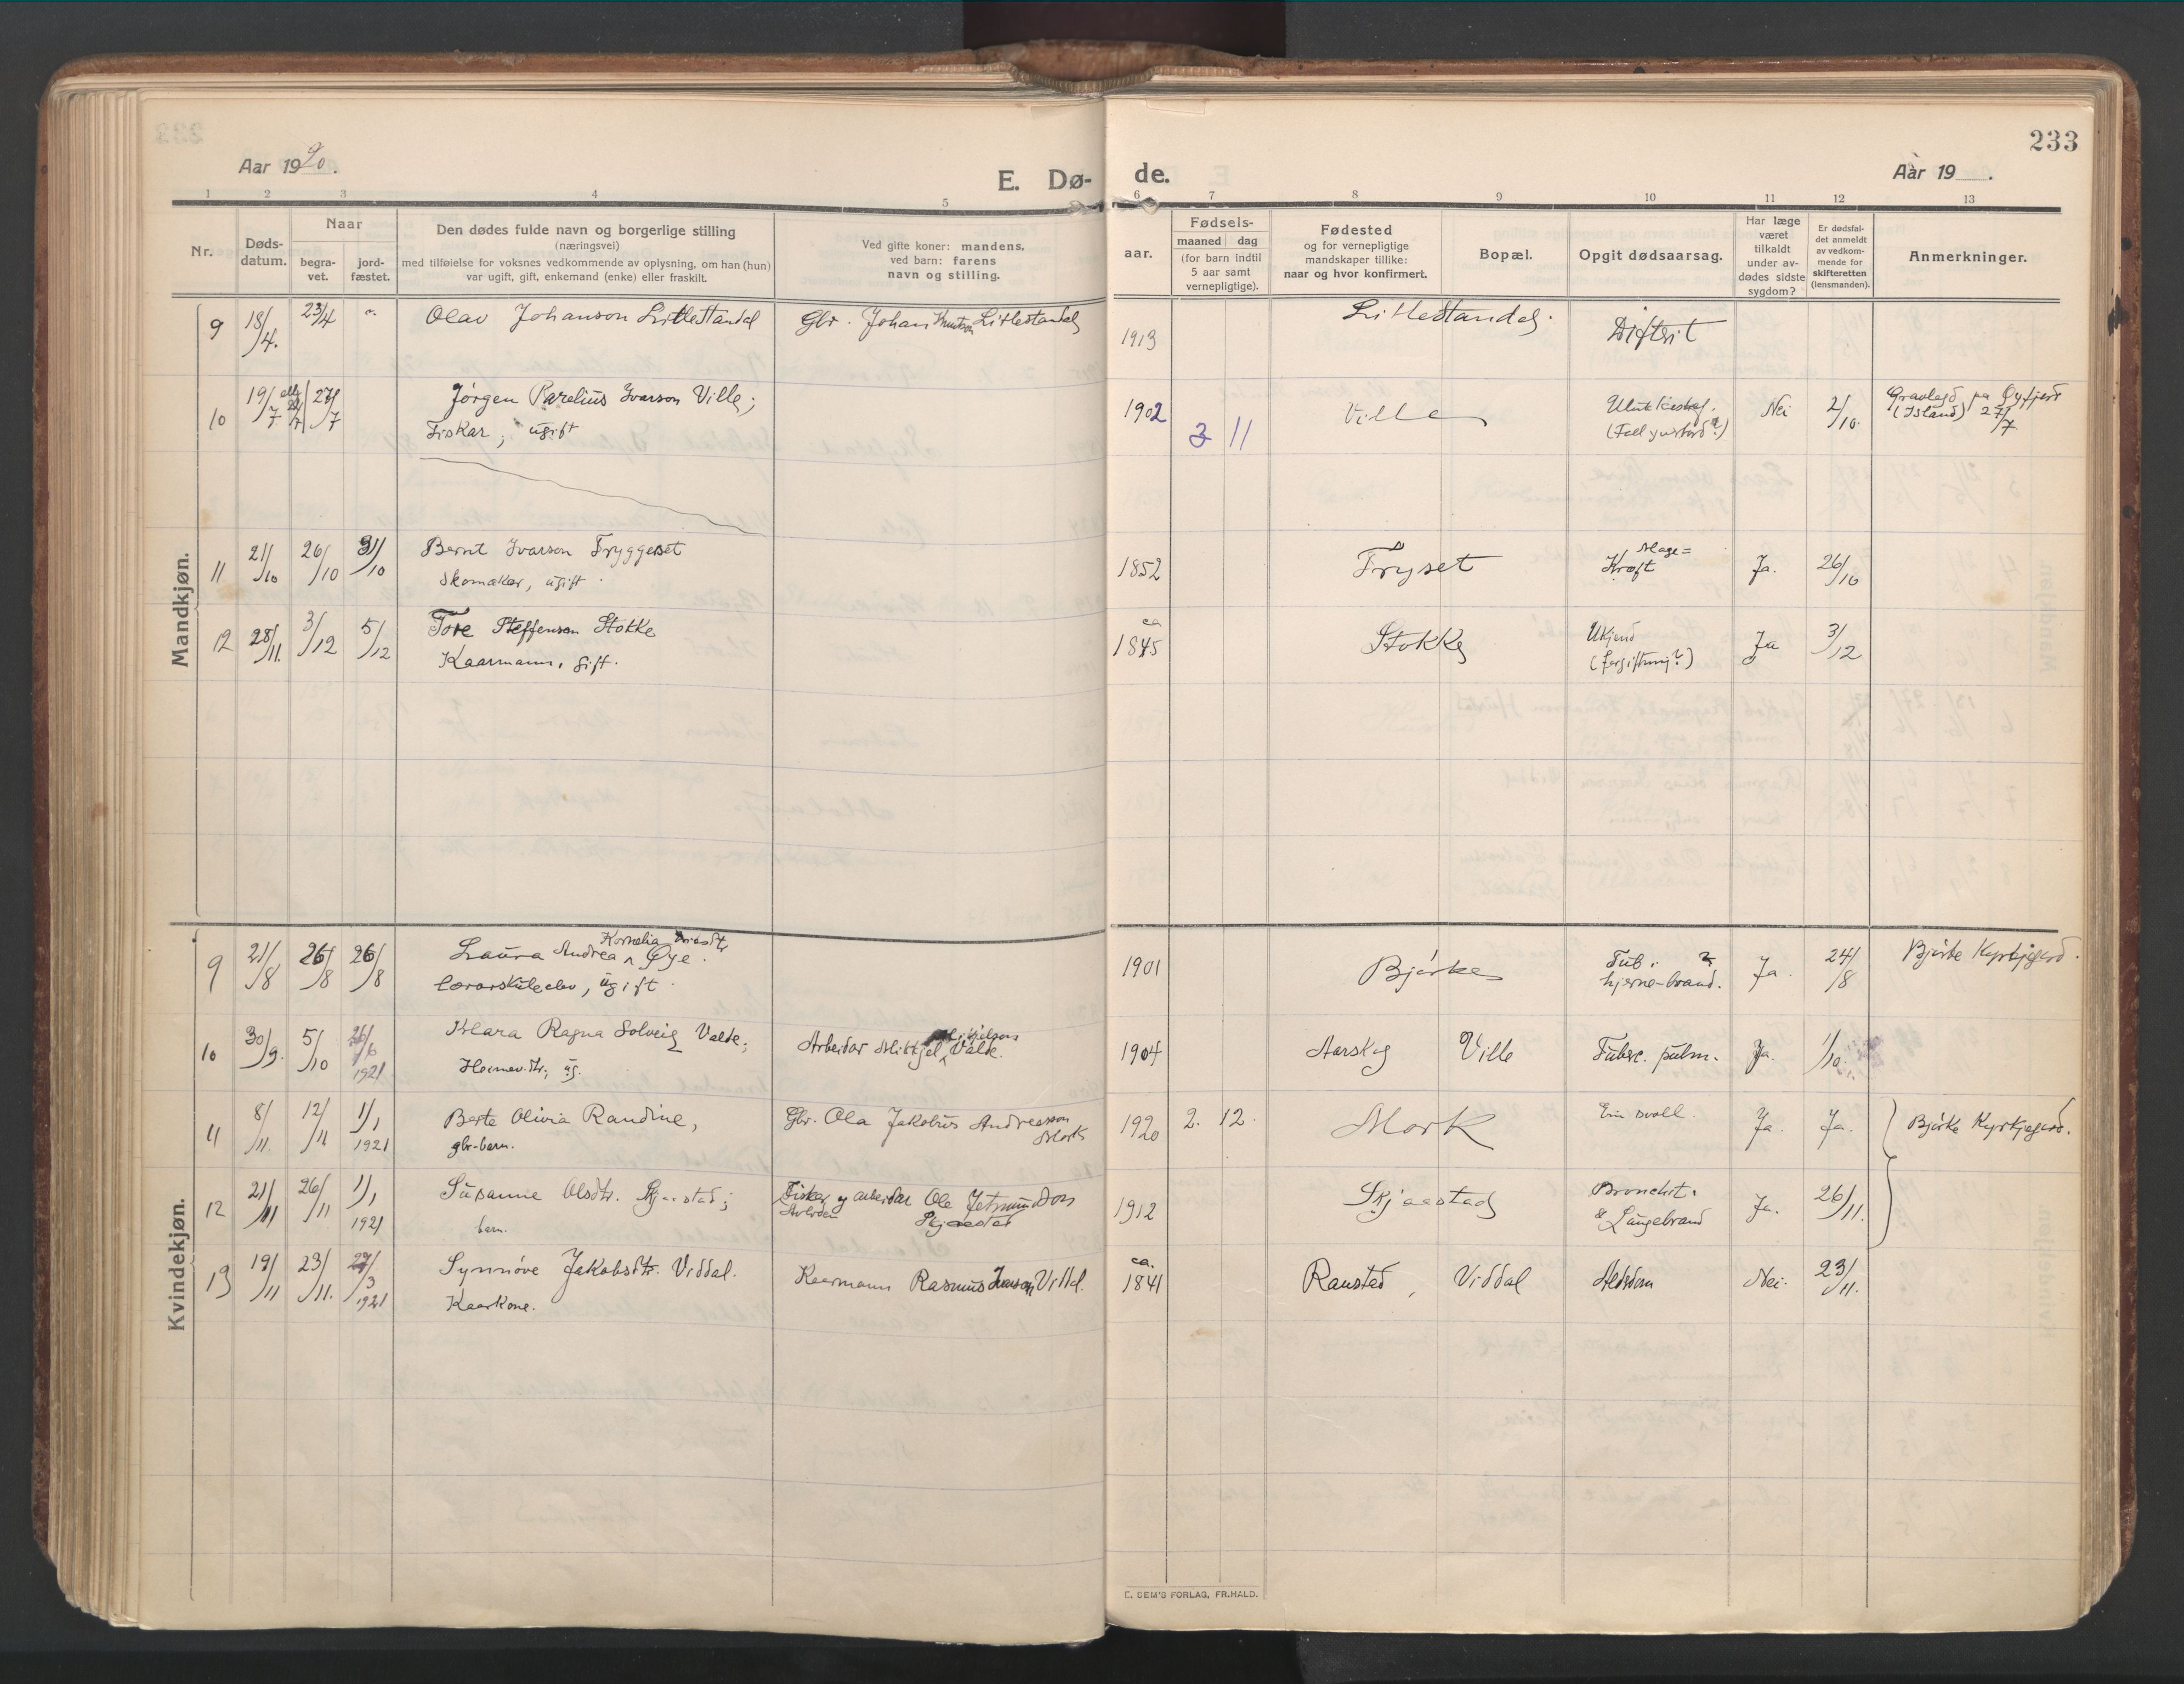 233
Aar 1920.
E. Dø-
de.
Aar 19 .
1 2 3 4 5 6 7 8 9 10 11 12 13
Nr.
Døds-
datum.
Naar
begra-
vet.
jord-
fæstet.
Den dødes fulde navn og borgerlige stilling
(næringsvei)
med tilføielse for voksnes vedkommende av oplysning, om han (hun)
var ugift, gift, enkemand (enke) eller fraskilt.
Ved gifte koner: mandens,
ved barn: farens
navn og stilling.
aar.
Fødsels-
maaned dag
(for barn indtil
5 aar samt
vernepligtige).
Fødested
og for vernepligtige
mandskaper tillike:
naar og hvor konfirmert.
Bopæl.
Opgit dødsaarsag.
Har læge
været
tilkaldt
under av-
dødes sidste
sygdom?
Er dødsfal-
det anmeldt
av vedkom-
mende for
skifteretten
(lensmanden).
Anmerkninger.
Mandkjøn.
9 18/4. 23/4 " Olav Johanson Litlestandal Gbr. Johan Knutson Litlestandal 1913 Litlestandal. Difterit
10 19/7 27/7 Jørgen Karelius Ivarson Ville; 1902 3 11 Ville Nei 2/10. Gravlagd pa Øyfjord
Fiskar, ugift (Island) 27/7
11 21/10 26/10 31/10 Bernt Ivarson Tryggeset 1852 Fryset Mage=
Skomaker, ugift. Kræft Ja. 26/10
12 28/11. 3/12 5/12 Tore Steffenson Stokke ca 1845 Stokke Ukjend Ja 3/12
Kaarmann, gift. (forgiftning?)
Kvindekjøn.
9 21/8 26/8 26/8 Laura Andrea Kornelia Øye. 1901 Bjørke Tub. ? Ja. 24/8 Bjørke Kyrkjegard.
lærarskuleelev, ugift. hjerne-brand.
10 30/9. 5/10 26/6 1921 Klara Ragna Solveig Valde; Arbeidar Mikkjel Valde. 1904 Aarskog Ville Tuberc. pulm. Ja. 1/10.
Heimev. dtr; ug.
11 8/11. 12/11 1/1 1921 Berte Olivia Randine, Gbr. Ola Jakobus Andreasson Mork 1920 2. 12. Mork Ja. Ja. Bjørke Kyrkjegard.
gbr-barn.
12 21/11 26/11 1/1 1921 Susanne Olsdtr. Skjaastad; Fiskar og arbeidar Ole Jetmundson 1912 Skjaastad Bronchit. Ja. 26/11.
barn. Skjaastad & Lungebrand
13 19/11 23/11. 27/3 1921 Synnøve Jakobsdtr. Viddal. Kaarmann Rasmus Viddal. ca. 1841 Raustad, Viddal Aldrdom Nei. 23/11.
Kaarkone.
E. SEM'S FORLAG, FR.HALD.